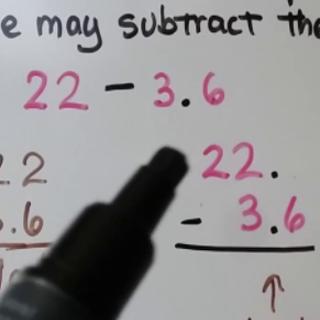 e may subtract the
22 - 3.6
22.
- 3.6
22
.6